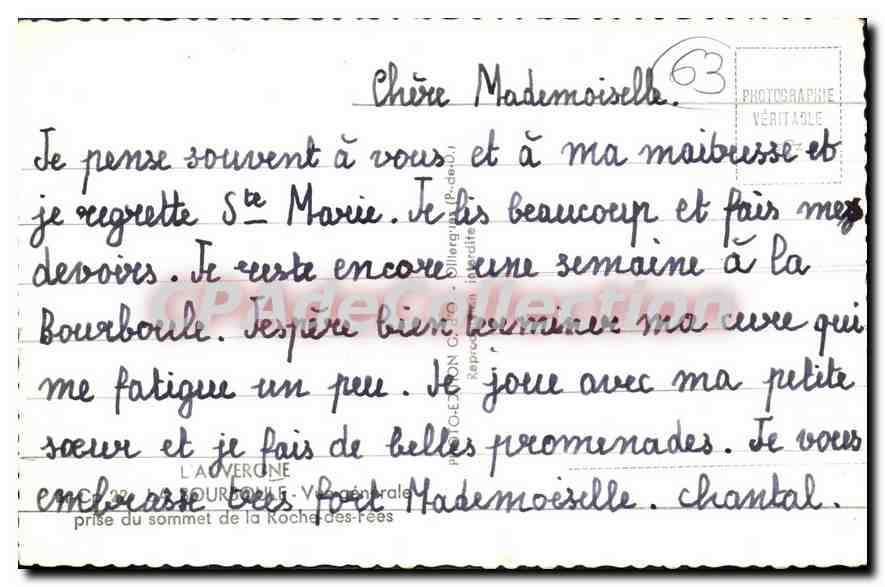 63
PHOTOGRAPHIE
VÉRITABLE
Chère Mademoiselle.
Je pense souvent à vous et à ma maitresse et
je regrette Ste Marie. Je lis beaucoup et fais mes
devoirs. Je reste encore une semaine à la
Bourboule. J'espère bien terminer ma cure qui
me fatigue un peu. Je joue avec ma petite
sœur et je fais de belles promenades. Je vous
embrasse très fort Mademoiselle. Chantal.
L'AUVERGNE
LA BOURBOULE - Vue générale
prise du sommet de la Roche-des-Fées
PHOTO-EDITION
Reproduction interdite
CPAdeCollection